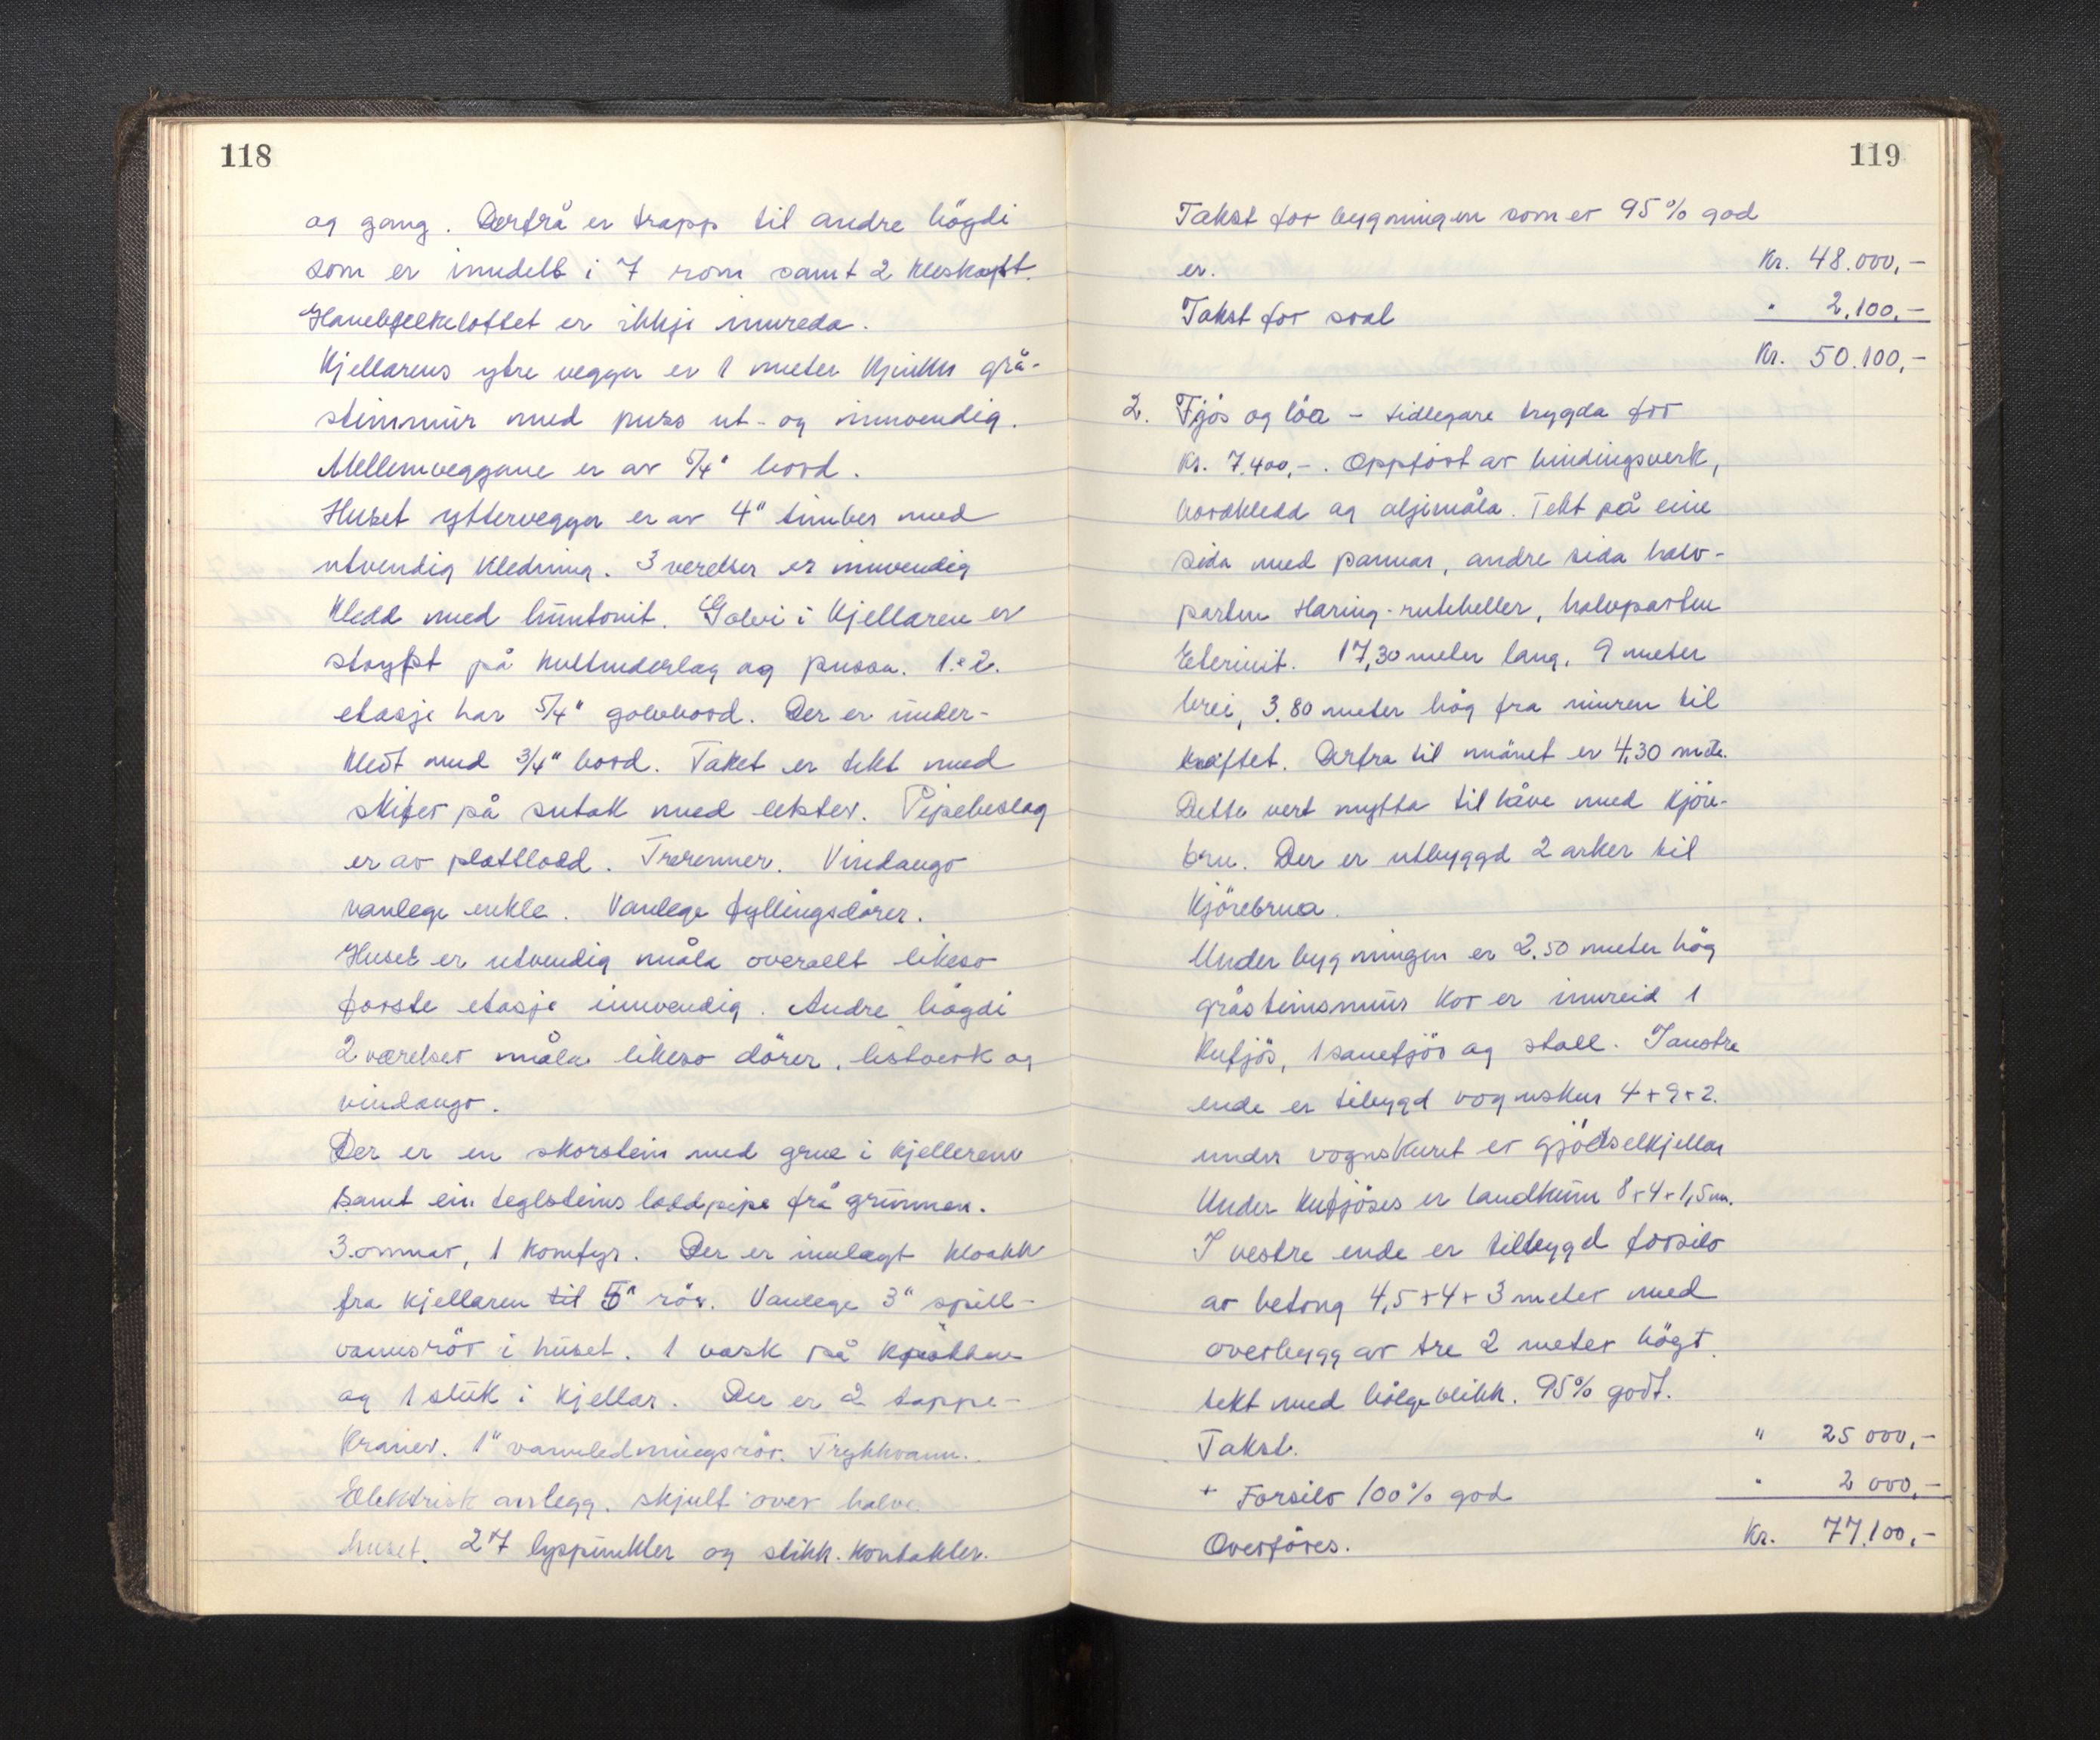 118
og gang. Derfrå er trapp til andre högdi
som er inndelt i 7 rom samt 2 kleskott.
Hanebjelkeloftet er ikkje innreda.
Kjellarens ytre vegger er 1 meter kjukk grå-
steinmur med puss ut- og innvendig.
Mellemveggane er av 5/4" bord.
Huset yttervegger er av 4" timber med
utvendig kledning. 3 verelser er innvendig
kledd med huntonit. Golvi i kjellaren er
stoypt på kultunderlag og pussa. 1. & 2.
etasje har 5/4" golvbord. Der er under-
kledt med 3/4" bord. Taket er tekt med
skifer på sutak med lekter. Pipebeslag
er av plattlodd. Trerenner. Vindaugo
vanlege enkle. Vanlege fyllingsdörer.
Huset er utvendig måla overallt likeso
forste etasje innvendig. Andre högdi
2 værelser måla likeso dörer, listverk og
vindaugo.
Der er en skorstein med grue i kjellerenn
samt ein teglsteins loddpipe frå grunnen.
3 omnar, 1 komfyr. Der er innlagt kloakk
fra kjellaren til 5" rör. Vanlege 3" spill-
vannsrör i huset. 1 vask på kjøkken
og 1 stük i kjellar. Der er 2 tappe-
kraner. 1" vannledningsrör. Trykkvann.
Elektrisk anlegg. skjult over halve
huset. 27 lyspunkter og stikk.kontakter.
119
Takst for bygningen som er 95% god
er. Kr. 48.000,-
Takst for sval " 2.100,-
Kr. 50.100,-
2. Fjös og löa - tidlegare trygda for
Kr. 7.400,-. Oppfört av bindingsverk,
bordkledd og oljemåla. Tekt på eine
sida med pannar, andre sida halv-
parten Haring-rutheller, halvparten
Eterinit. 17,30 meter lang, 9 meter
brei, 3.80 meter hög fra muren til
kraftet. Derfra til mönet er 4,30 mete.
Dette vert nytta til låve med kjöre-
bru. Der er utbyggd 2 arker til
Kjörebrua.
Under bygningen er 2.50 meter hög
gråsteinsmur kor er innreid 1
kufjös, 1 sauefjös og stall. I austre
ende er tilbygd vognskur 4+9+2.
under vognskuret er gjödselkjellar
Under kufjöses er landkum 8+4+1,5 m.
I vestre ende er tilbygd forsilo
av betong 4,5+4+3 meter med
overbygg av tre 2 meter högt
tekt med bölgeblikk. 95% godt.
Takst. " 25 000,-
+ Forsilo 100% god " 2 000,-
Overföres. Kr. 77.100,-